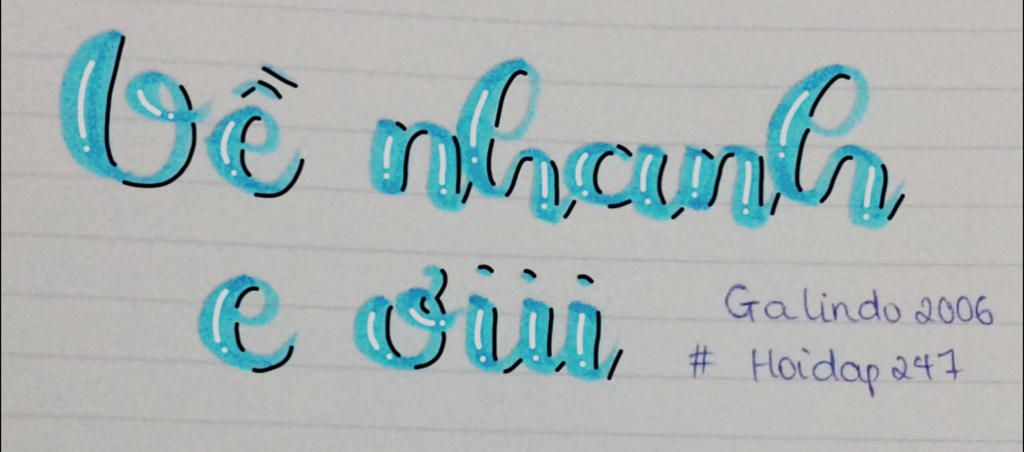 Về nhanh
e ơiii
Galindo 2006
# Hoidap 247